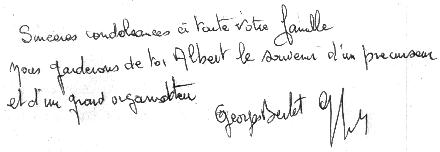 Sinceres condoléances à toute votre famille
Nous garderons de toi Albert le souvenir d'un precurseur
et d'un grand organisateur
Georges Berlet